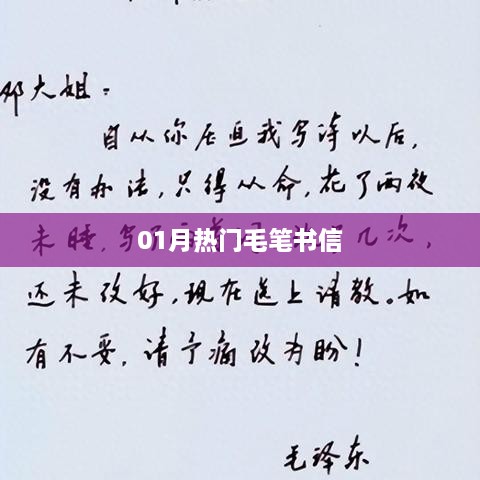 邓大姐：
自从你压迫我写诗以后，
没有办法，只得从命，花了两夜
未睡，写
几次，
01月热门毛笔书信
还未改好，现在送上请教。如
有不妥，请予痛改为盼！
毛泽东